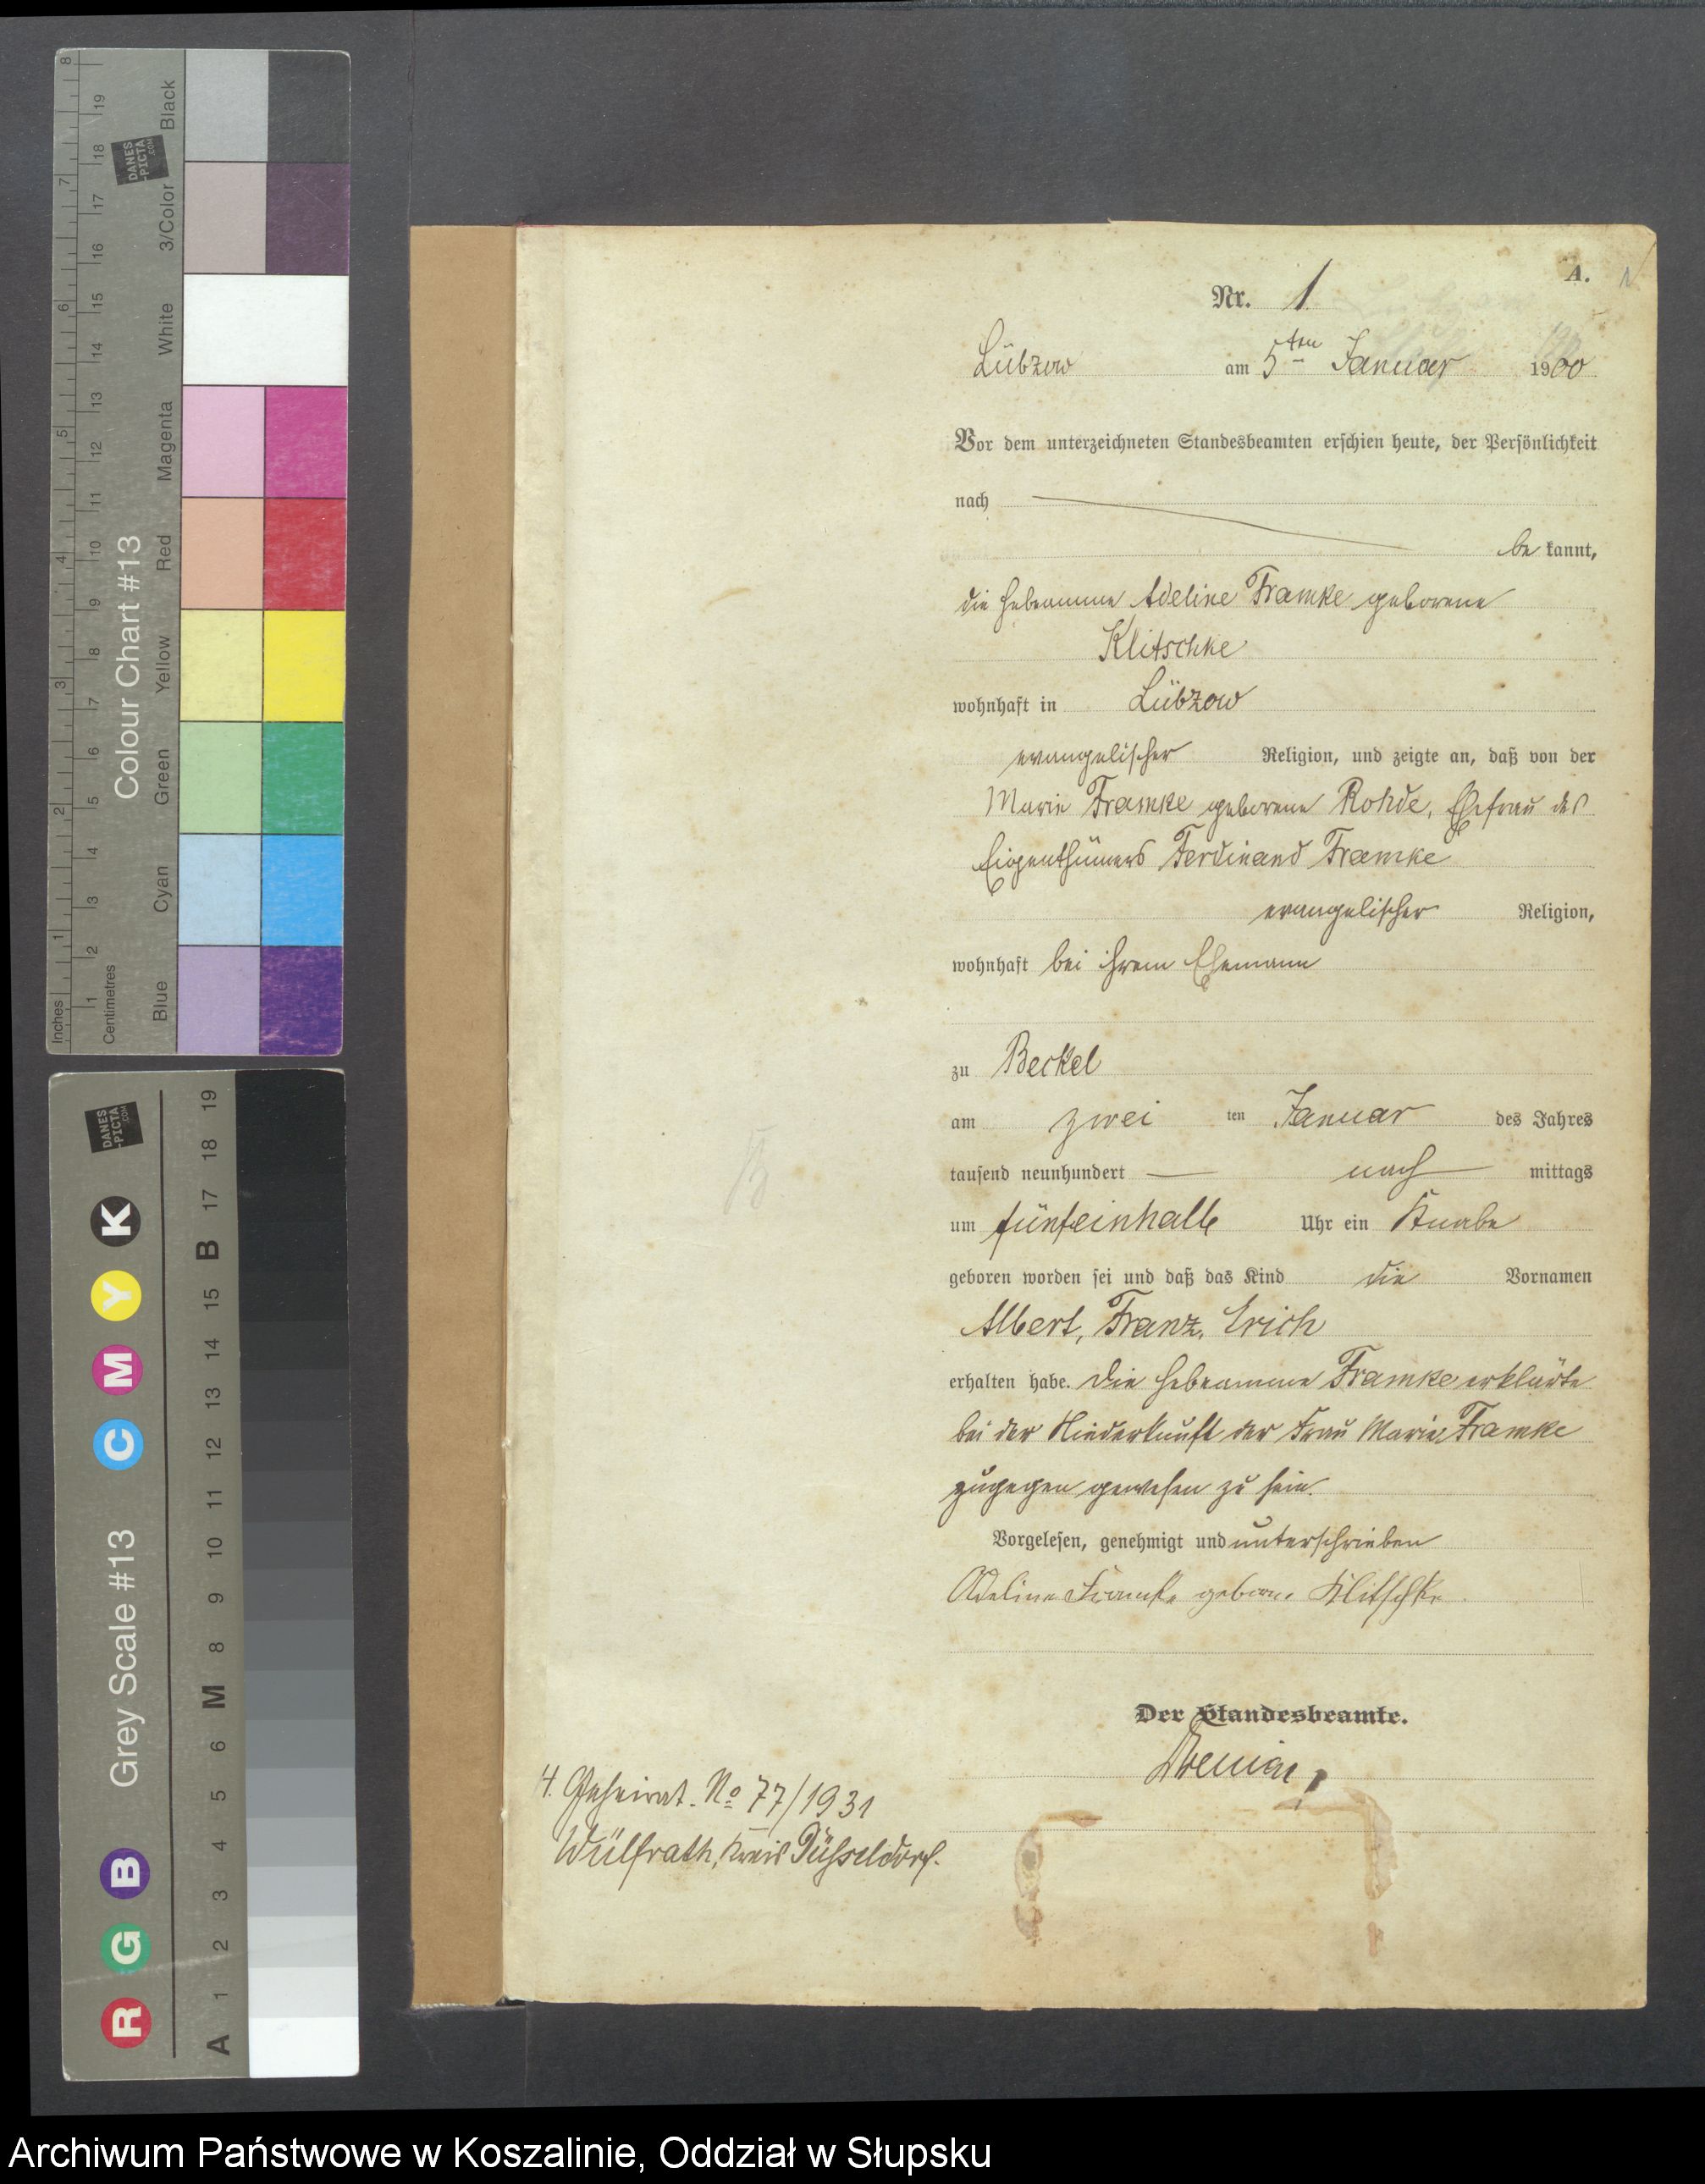 A.
Nr. 1
Lübzow am 5ten Januar 1900
Vor dem unterzeichneten Standesbeamten erschien heute, der Persönlichkeit
nach
be kannt,
die Hebeamme Adeline Framke geborene
Klitschke
wohnhaft in Lübzow
evangelischer Religion, und zeigte an, daß von der
Marie Framke geborene Rohde, Ehefrau des
Eigenthümers Ferdinand Framke
evangelischer Religion,
wohnhaft bei ihrem Ehemann
zu Beckel
am zwei ten Januar des Jahres
tausend neunhundert nach mittags
um fünfeinhalb Uhr ein Knabe
geboren worden sei und daß das Kind die Vornamen
Albert, Franz, Erich
erhalten habe. Die Hebeamme Framke erklärte
bei der Niederkunft der Frau Marie Framke
zugegen gewesen zu sein.
Vorgelesen, genehmigt und unterschrieben
Adeline Framke geborne Klitschke
Der Standesbeamte.
No 77/1931
Wülfrath, Kreis Düsseldorf.
Colour Chart #13
Black
3/Color
White
Magenta
Red
Yellow
Green
Cyan
Blue
Inches
Centimetres
1 2 3 4 5 6 7 8
1 2 3 4 5 6 7 8 9 10 11 12 13 14 15 16 17 18 19
DANES
-PICTA
.COM
Grey Scale #13
R G B C M Y K
A 1 2 3 4 5 6 M 8 9 10 11 12 13 14 15 B 17 18 19
DANES
-PICTA
.COM
Archiwum Państwowe w Koszalinie, Oddział w Słupsku